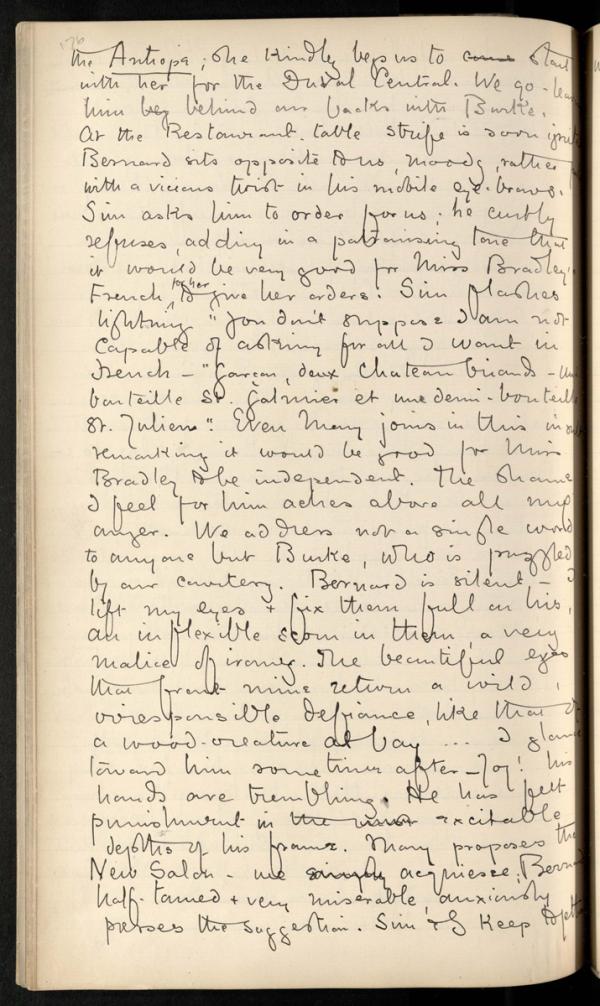 176
the Antiopa; she kindly begs us to come start
with her for the Duval Central. We go - 
him behind our backs with Burke.
At the Restaurant-table strife is soon
Bernard sits opposite to us, moody, rather
with a vicious twist in his mobile eye-brows.
Sim asks him to order for us; he curtly
refuses, adding in a patronising tone that
it would be very good for Miss Bradley's
French, for her to give her orders. Sim flashes
lightning "You don't suppose I am not
capable of asking for all I want in
French - "Garcon, deux Chateaubriands -
bouteille St. Galmier et une demi-bouteille
St. Julien". Even Mary joins in this
remarking it would be good for Miss
Bradley to be independent. The shame
I feel for him aches above all my
anger. We address not a single word
to anyone but Burke, who is puzzled
by our courtesy. Bernard is silent - I
lift my eyes & fix them full on his,
an inflexible scorn in them, a very
malice of irony. The beautiful eyes
that front mine return a wild,
irresponsible defiance, like that of
a wood-creature at bay ... I glance
toward him some time after - Joy! his
hands are trembling. He has felt
punishment in the excitable
depths of his frame. Mary proposes the
New Salon - we simply acquiesce; Bernard
half-tamed & very miserable, anxiously
presses the suggestion. Sim & I keep